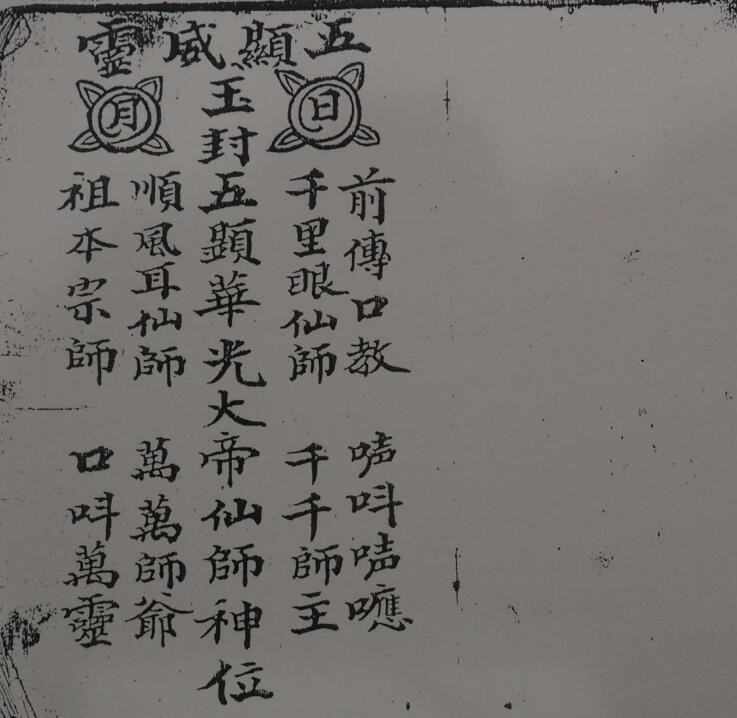 五顯威靈
日
月
前傳口教 唛呌唛嚒
千里眼仙師 千千師主
玉封五顯華光大帝仙師神位
順風耳仙師 萬萬師爺
祖本宗師 口呌萬靈